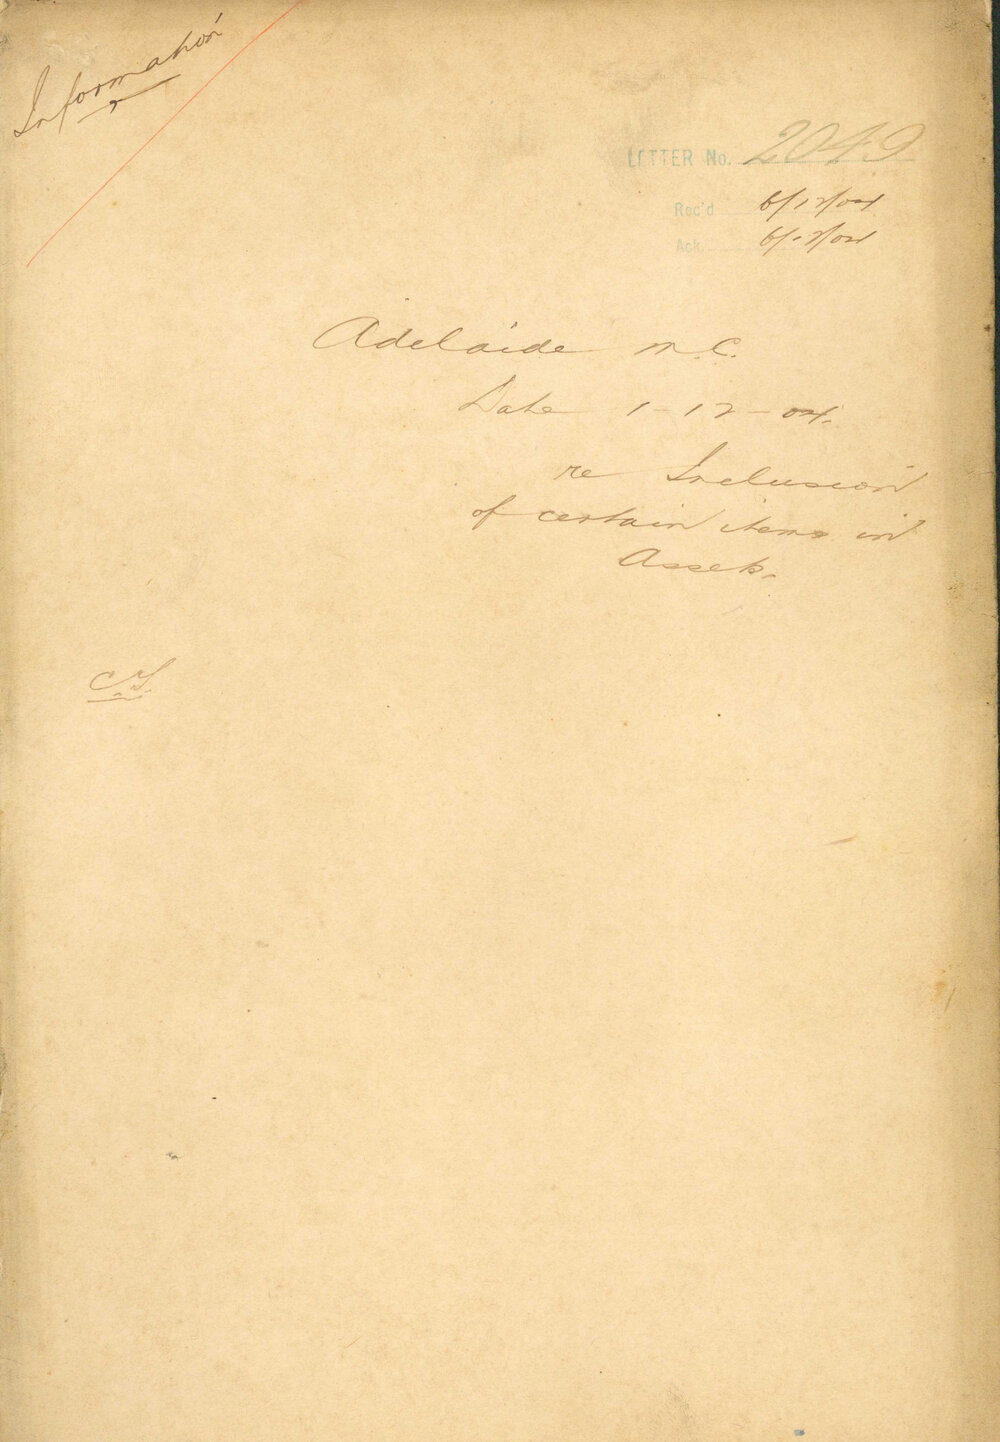 Information
LETTER No. 2049
Rec'd 6/12/04
Ack. 6/12/04
Adelaide M.C.
Date 1-12-04.
re Inclusion
of certain items in
Assets.